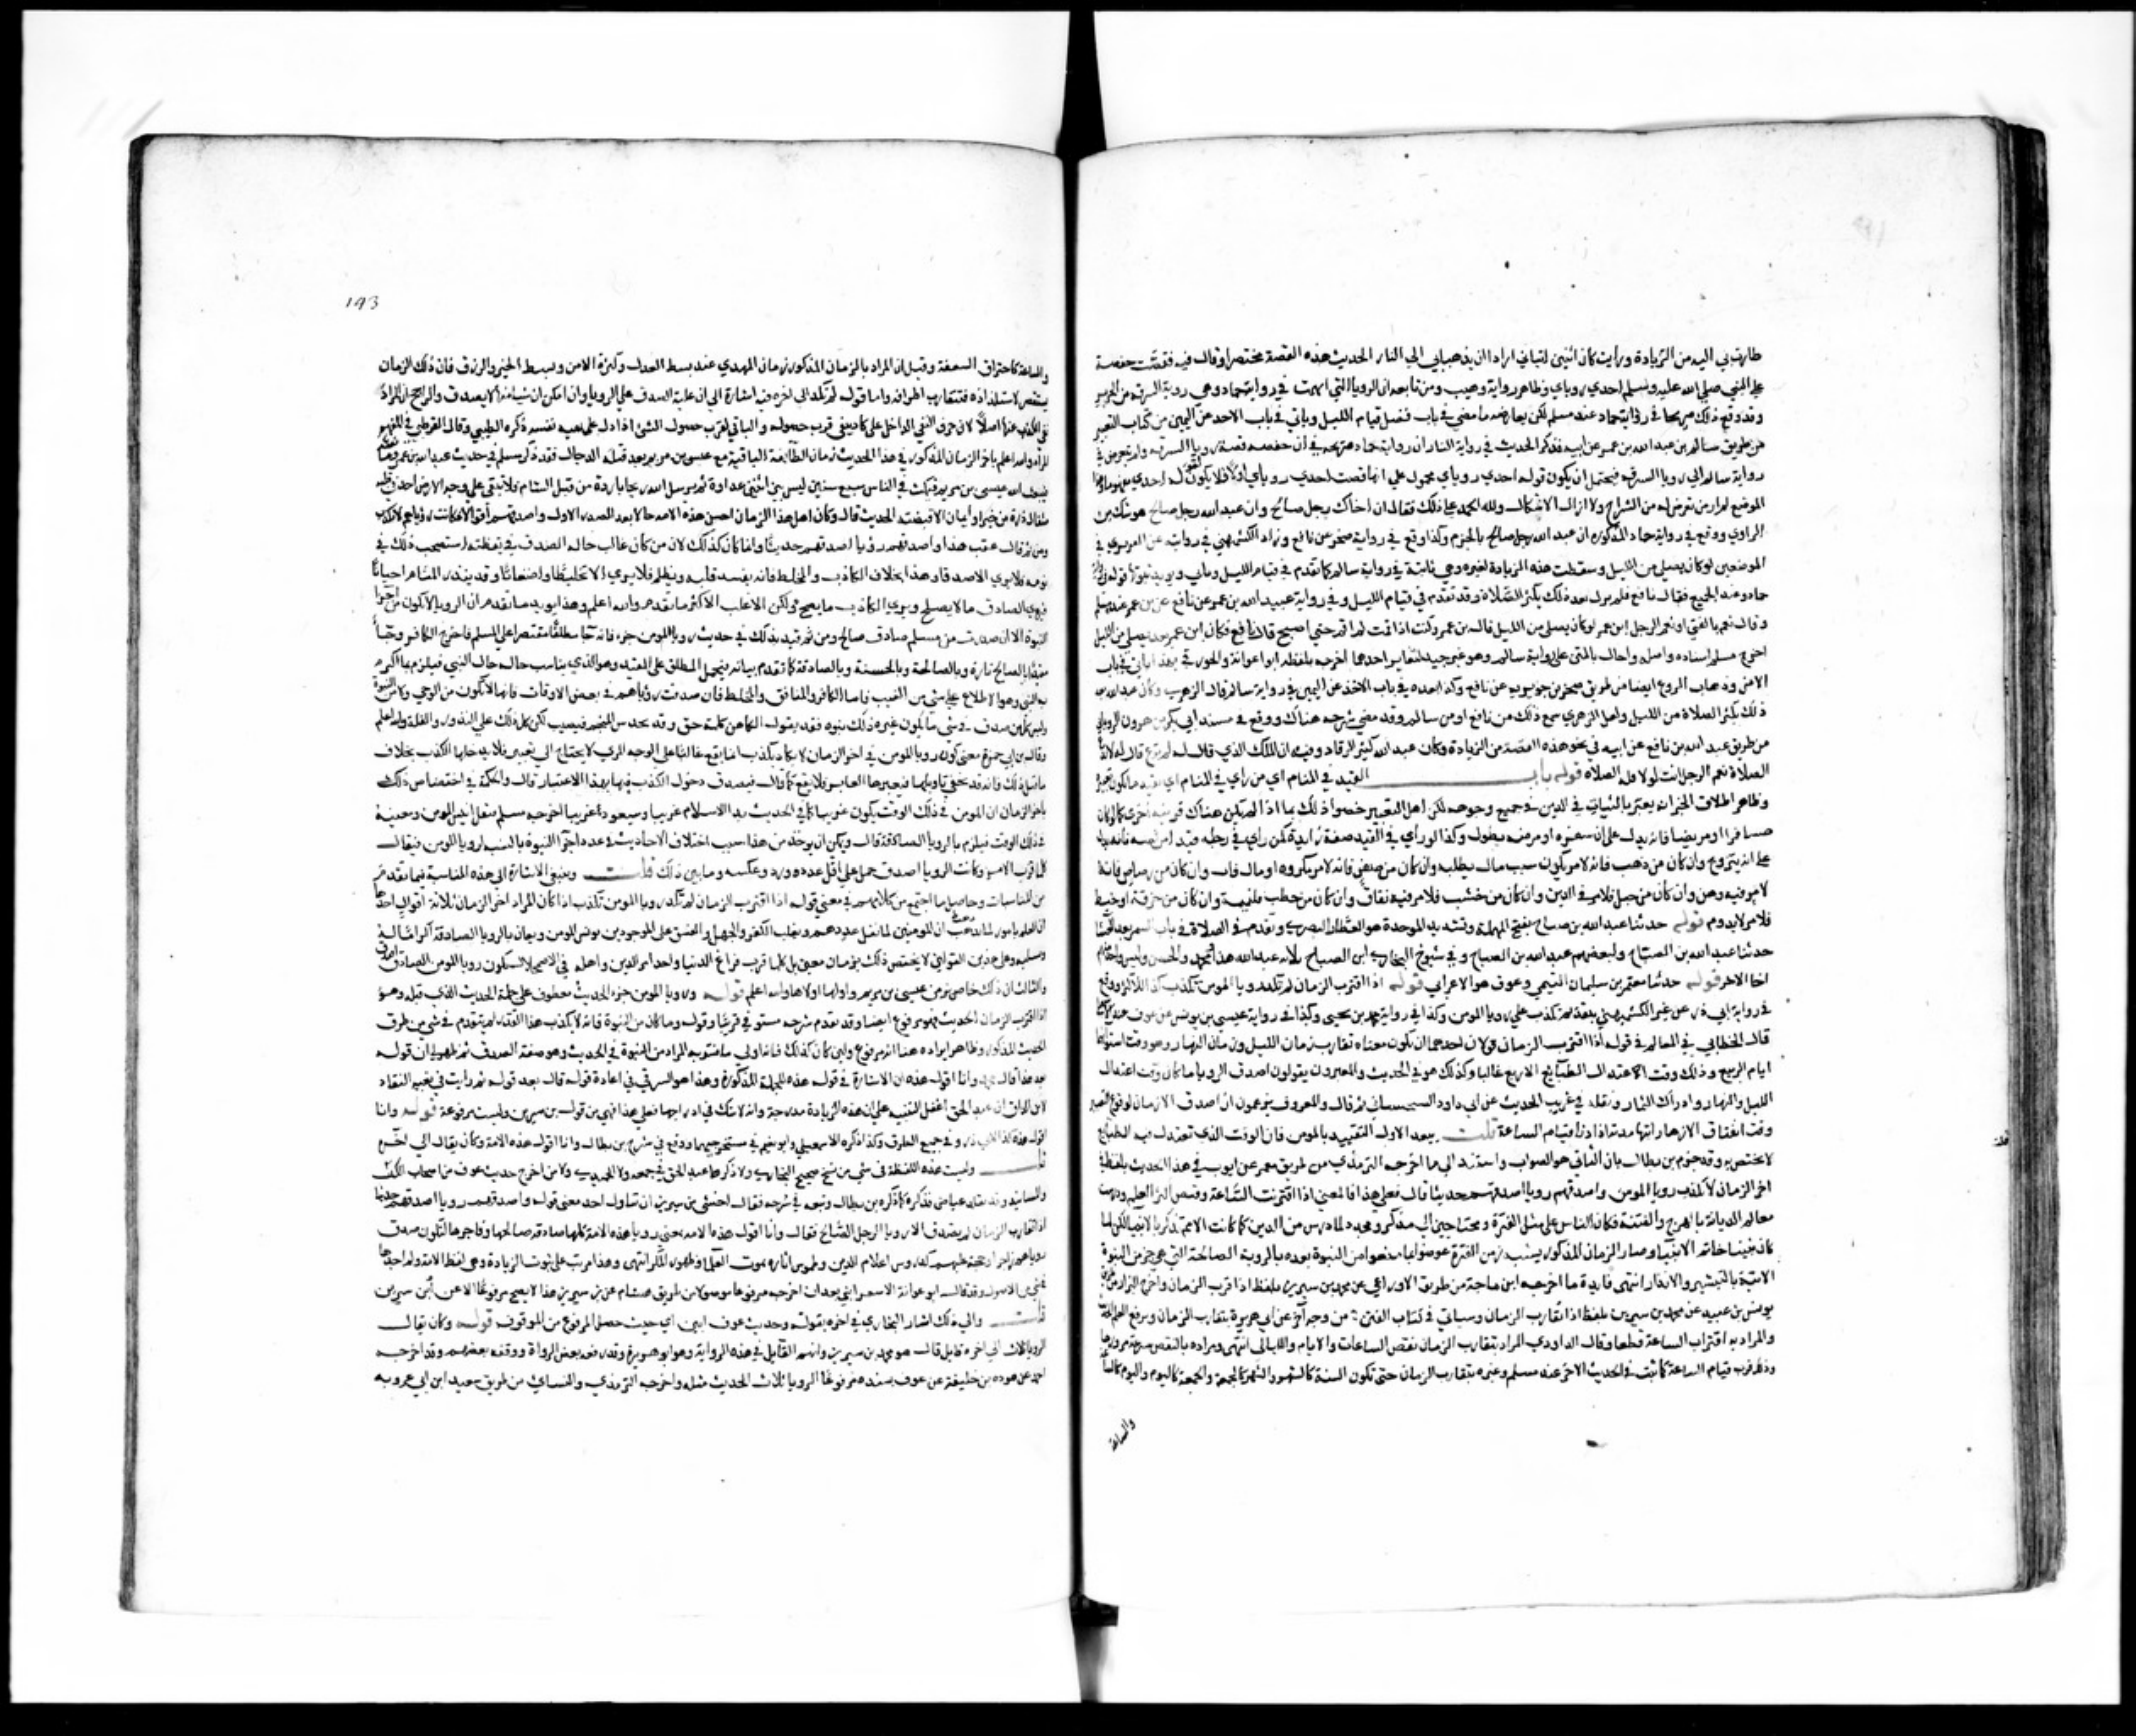 طارت بي اليه من الزيادة ورايت كان اثنين اتياني ارادا ان يذهبا بي الي النار الحديث هذه القصة مختصرا وقال فيه فقصت حفصة
علي النبي صلي الله عليه وسلم احدي روياي وظاهر رواية وهيب ومن تابعه ان الرويا التي ابهمت في رواية حماد وهي روية السرقة من الحرير
وقد وقع ذلك صريحا في رواية حماد عند مسلم لكن يعارضه ما مضي في باب فضل قيام الليل وياتي في باب الاخذ عن اليمين من كتاب التعبير
من طريق سالم بن عبد الله بن عمر عن ابيه فذكر الحديث في روية النار ان رواية حماد
رواية سالم الي رويا السرقة فيحتمل ان يكون قوله احدي روياي محمول علي انها قصت احدي روياي اولا فلا يكون لقوله احدي مفهوم وهذا
الموضع لم ار من تعرض له من الشراح ولا ازال اشكاله ولله الحمد علي ذلك فقال ان اخاك رجل صالح وان عبد الله رجل صالح هو شك من
الراوي ووقع في رواية حماد المذكورة ان عبد الله رجل صالح بالجزم وكذا وقع في رواية صخر عن نافع وزاد الكشميهني في روايته عن الفربري في
الموضعين لو كان يصلي من الليل وسقطت هذه الزيادة لغيره وهي ثابتة في رواية سالم كما تقدم في قيام الليل وياتي ويويد ثبوتها قوله في رواية
حماد عند الجميع فقال نافع فلم يزل بعد ذلك يكثر الصلاة وقد تقدم في قيام الليل وفي رواية عبيد الله بن عمر عن نافع عن بن عمر عند مسلم
وقال نعم الفتي او نعم الرجل ابن عمر لو كان يصلي من الليل قال بن عمر وكنت اذا نمت لم اقم حتي اصبح قال نافع فكان ابن عمر بعد يصلي من الليل
اخرج مسلم اسناده واصله واحال بالمتن علي رواية سالم وهو غير جيد لتغايرهما اخرجه بلفظه ابو عوانة والجوزقي بهذا ياتي في باب
الامن وذهاب الروع ايضا من طريق صخر بن جويرية عن نافع وكذا بعده في باب الاخذ عن اليمين في رواية سالم قال الزهري وكان عبد الله بعد
ذلك يكثر الصلاة من الليل ولعل الزهري سمع ذلك من نافع او من سالم وقد مضي شرحه هناك ووقع في مسند ابي بكر بن هرون الروياني
من طريق عبد الله بن نافع عن ابيه في نحو هذه القصة من الزيادة وكان عبد الله كثير الرقاد وفيه ان الملك الذي قال له لم ترع قال له لا تدع
الصلاة نعم الرجل انت لولا قلة الصلاة قوله باب القيد في المنام اي من راي في المنام انه مقيد ما يكون تعبيره
وظاهر اطلاق الخبر انه يعبر بالثبات في الدين في جميع وجوهه لكن اهل التعبير خصوا ذلك بما اذا لم تكن هناك قرينة اخري كما لو كان
مسافرا او مريضا فانه يدل علي ان سفره او مرضه يطول وكذا لو راي في القيد صفة زايدة كمن راي في رجله قيدا من فضة فانه يدل
علي انه يتزوج وان كان من ذهب فانه لامر يكون بسبب مال يطلبه وان كان من صفر فانه لامر مكروه او مال فات وان كان من رصاص فانه
لامر فيه وهن وان كان من حبل فلامر في الدين وان كان من خشب فلامر فيه نفاق وان كان من حطب فلتهمة وان كان من خرقة او خيط
فلامر لا يدوم قوله حدثنا عبد الله بن صباح بفتح المهملة وتشديد الموحدة هو العطار البصري وتقدم في الصلاة في باب السمر بعد العشا
حدثنا عبد الله بن الصباح ولبعضهم عبد الله بن الصباح وفي شيوخ البخاري ابن الصباح ثلاثة عبد الله هذا ومحمد والحسن وليس واحد منهم
اخا الاخر قوله حدثنا معتمر بن سليمان التيمي وعوف هو الاعرابي قوله اذا اقترب الزمان لم تكد رويا المومن تكذب كذا للاكثر ووقع
في رواية ابي ذر عن غير الكشميهني بتقديم تكذب علي رويا المومن وكذا في رواية محمد بن يحيي وكذا في رواية عيسي بن يونس عن عوف عند
قال الخطابي في المعالم في قوله اذا اقترب الزمان قولان احدهما ان يكون معناه تقارب زمان الليل وزمان النهار وهو وقت استوايهما
ايام الربيع وذلك وقت اعتدال الطبايع الاربع غالبا وكذلك هو في الحديث والمعبرون يقولون اصدق الرويا ما كان وقت اعتدال
الليل والنهار وادراك الثمار ونقله في غريب الحديث عن ابي داود السجستاني ثم قال والمعروف يزعمون ان اصدق الازمان لوقوع التعبير
وقت انفتاق الازهار انتها مدته اذا دنا قيام الساعة قلت يبعد الاول التقييد بالمومن فان الوقت الذي تعتدل فيه الطبايع
لا يختص به وقد جزم بن بطال بان الثاني هو الصواب واستند الي ما اخرجه الترمذي من طريق معمر عن ايوب في هذا الحديث بلفظ في
اخر الزمان لا تكذب رويا المومن واصدقهم رويا اصدقهم حديثا قال فعلي هذا فالمعني اذا اقتربت الساعة وقبض اكثر العلم ودرست
معالم الديانة بالهرج والفتنة فكان الناس علي مثل الفترة محتاجين الي مذكر ومجدد لما درس من الدين كما كانت الامم تذكر بالانبيا لكن لما
كان نبينا خاتم الانبيا وصار الزمان المذكور يشبه زمن الفترة عوضوا بما منعوا من النبوة بعده بالروية الصالحة التي هي جزء من النبوة
الاتية بالتبشير والانذار انتهي فايدة ما اخرجه ابن ماجة من طريق الاوزاعي عن محمد بن سيرين بلفظ اذا قرب الزمان واخرج البزار من طريق
يونس بن عبيد عن محمد بن سيرين بلفظ اذا تقارب الزمان وسياتي في كتاب الفتن من وجه اخر عن ابي هريرة يتقارب الزمان ويرفع العلم
والمراد به اقتراب الساعة قطعا وقال الداودي المراد بتقارب الزمان نقص الساعات والايام والليالي انتهي ومراده بالنقص سرعة مرورها
وذلك قرب قيام الساعة كما ثبت في الحديث الاخر عند مسلم وغيره يتقارب الزمان حتي تكون السنة كالشهر والشهر كالجمعة والجمعة كاليوم واليوم كالساعة
والساعة
193
والساعة كاحتراق السعفة وقيل ان المراد بالزمان المذكور زمان المهدي عند بسط العدل وكثرة الامن وبسط الخير والرزق فان ذلك الزمان
يستقصر لاستلذاذه فتتقارب اطرافه واما قوله لم تكد الي اخره فيه اشارة الي ان غلبة الصدق علي الرويا وان امكن ان شيا منها لا يصدق والراجح ان المراد
نفي الكذب عنها اصلا لان حرف النفي الداخل علي كاد ينفي قرب حصوله والنافي لقرب حصول الشي ادل علي نفيه نفسه ذكره الطيبي وقال القرطبي في المفهم
المراد والله اعلم باخر الزمان المذكور في هذا الحديث زمان الطايفة الباقية مع عيسي بن مريم بعد قتله الدجال فقد ذكر مسلم في حديث عبد الله بن عمر
فيبعث الله عيسي بن مريم فيمكث في الناس سبع سنين ليس بين اثنين عداوة ثم يرسل الله ريحا باردة من قبل الشام فلا يبقي علي وجه الارض احد في قلبه
مثقال ذرة من خير او ايمان الا قبضته الحديث قال وكان اهل هذا الزمان احسن هذه الامة حالا بعد الصدر الاول واصدقهم اقوالا فكانت روياهم لا تكذب
ومن ثم قال عقب هذا واصدقهم رويا اصدقهم حديثا وانما كان كذلك لان من كان غالب حاله الصدق في يقظته استصحب ذلك في
نومه فلا يري الا صدقا وهذا بخلاف الكاذب والمخلط فانه يفسد قلبه ويظلم فلا يري الا تخليطا واضغاثا وقد يندر المنام احيانا
فيري الصادق ما لا يصح ويري الكاذب ما يصح ولكن الاغلب الاكثر ما تقدم والله اعلم وهذا يويد ما تقدم ان الرويا لا تكون من اجزا
النبوة الا ان صدرت من مسلم صادق صالح ومن ثم قيد بذلك في حديث رويا المومن جزء فانه جا مطلقا مقتصرا علي المسلم فاخرج الكافر وجا
مقيدا بالصالح تارة وبالصالحة وبالحسنة وبالصادقة كما تقدم بيانه فيحمل المطلق علي المقيد وهو الذي يناسب حاله حال النبي فيكرم بما اكرم
به النبي وهو الاطلاع علي شي من الغيب فاما الكافر والمنافق والمخلط فان صدقت روياهم في بعض الاوقات فانها لا تكون من الوحي ولا من النبوة
وليس كل من صدق في شي ما يكون خبره ذلك نبوة فقد يقول الكاهن كلمة حق وقد يحدس المنجم فيصيب لكن كل ذلك علي الندور والقلة والله اعلم
وقال بن ابي جمرة معني كون رويا المومن في اخر الزمان لا تكاد تكذب انها تقع غالبا علي الوجه المري لا يحتاج الي تعبير فلا يدخلها الكذب بخلاف
ما قبل ذلك فانه قد يخفي تاويلها فيعبرها العابر فلا تقع كما قال فيصدق دخول الكذب فيها بهذا الاعتبار قال والحكمة في اختصاص ذلك
باخر الزمان ان المومن في ذلك الوقت يكون غريبا كما في الحديث بدا الاسلام غريبا وسيعود غريبا اخرجه مسلم فيقل انيس المومن ومعينه
في ذلك الوقت فيكرم بالرويا الصادقة قال ويمكن ان يوخذ من هذا سبب اختلاف الاحاديث في عدد اجزا النبوة بالنسبة لرويا المومن فيقال
كلما قرب الامر وكانت الرويا اصدق حمل علي اقل عدد ورد وعكسه وما بين ذلك قلت وينبغي الاشارة الي هذه المناسبة فيما تقدم
من المناسبات وحاصل ما اجتمع من كلامهم في معني قوله اذا اقترب الزمان لم تكد رويا المومن تكذب اذا كان المراد اخر الزمان ثلاثة اقوال احدها
ان العلم بامور الديانة لما يذهب ان المومنين لما يقل عددهم ويغلب الكفر والجهل والفسق علي الموجودين يونس المومن ويعان بالرويا الصادقة اكراما له
وتسلية وعلي هذين القولين لا يختص ذلك بزمان معين بل كلما قرب فراغ الدنيا واخذ امر الدين واهله في الاضمحلال تكون رويا المومن الصادق اصدق
والثالث ان ذلك خاص بزمن عيسي بن مريم واولها اولاها والله اعلم قوله ورويا المومن جزء الحديث معطوف علي جملة الحديث الذي قبله وهو
اذا اقترب الزمان الحديث فهو مرفوع ايضا وقد تقدم شرحه مستوفي قريبا وقوله وما كان من النبوة فانه لا يكذب هذا القدر لم يتقدم في شي من طرق
الحديث المذكور وظاهر ايراده هنا انه مرفوع ولين كان كذلك فانه اولي ما فسر به المراد من النبوة في الحديث وهو صفة الصدق ثم ظهر لي ان قوله
بعد هذا قال محمد وانا اقول هذه ان الاشارة في قوله هذه للجملة المذكورة وهذا هو السر في اعادة قوله قال بعد قوله ثم رايت في بغية النقاد
لابن المواق ان عبد الحق اغفل التنبيه علي ان هذه الزيادة مدرجة وانه لا شك في ادراجها فعلي هذا فهي من قول بن سيرين وليست مرفوعة قوله وانا
اقول هذه كذا لابي ذر وفي جميع الطرق وكذا ذكره الاسمعيلي وابو نعيم في مستخرجيهما ووقع في شرح بن بطال وانا اقول هذه الامة وكان يقال الي اخره
قلت وليست هذه اللفظة في شي من نسخ صحيح البخاري ولا ذكرها عبد الحق في جمعه ولا الحميدي ولا من اخرج حديث عوف من اصحاب الكتب
والمسانيد وقد تقلده عياض فذكره كما ذكره بن بطال وتبعه في شرحه فقال خشي بن سيرين ان يتاول احد معني قوله واصدقهم رويا اصدقهم حديثا
اذا تقارب الزمان لم يصدق الا رويا الرجل الصالح فقال وانا اقول هذه الامة يعني رويا هذه الامة كلها صادقة صالحها وفاجرها لتكون صدق
روياهم زاجرا وحجة عليهم لدروس اعلام الدين وطموس اثاره بموت العلما وظهور المنكر انتهي وهذا مرتب علي ثبوت الزيادة وهي لفظة الامة ولم اجدها
في شي من الاصول وقد قال ابو عوانة الاسفرايني بعد ان اخرجه مرفوعا موصولا من طريق هشام عن بن سيرين هذا لا يصح مرفوعا الا عن ابن سيرين
قلت والي ذلك اشار البخاري في اخره بقوله وحديث عوف ابين اي حيث فصل المرفوع من الموقوف قوله وكان يقال
الرويا ثلاث الي اخره قايل قال هو محمد بن سيرين وابهم القايل في هذه الرواية وهو ابو هريرة وقد رفعه بعض الرواة ووقفه بعضهم وقد اخرجه
احمد عن هوذة بن خليفة عن عوف بسنده مرفوعا الرويا ثلاث الحديث مثله واخرجه الترمذي والنسائي من طريق سعيد ابن ابي عروبة